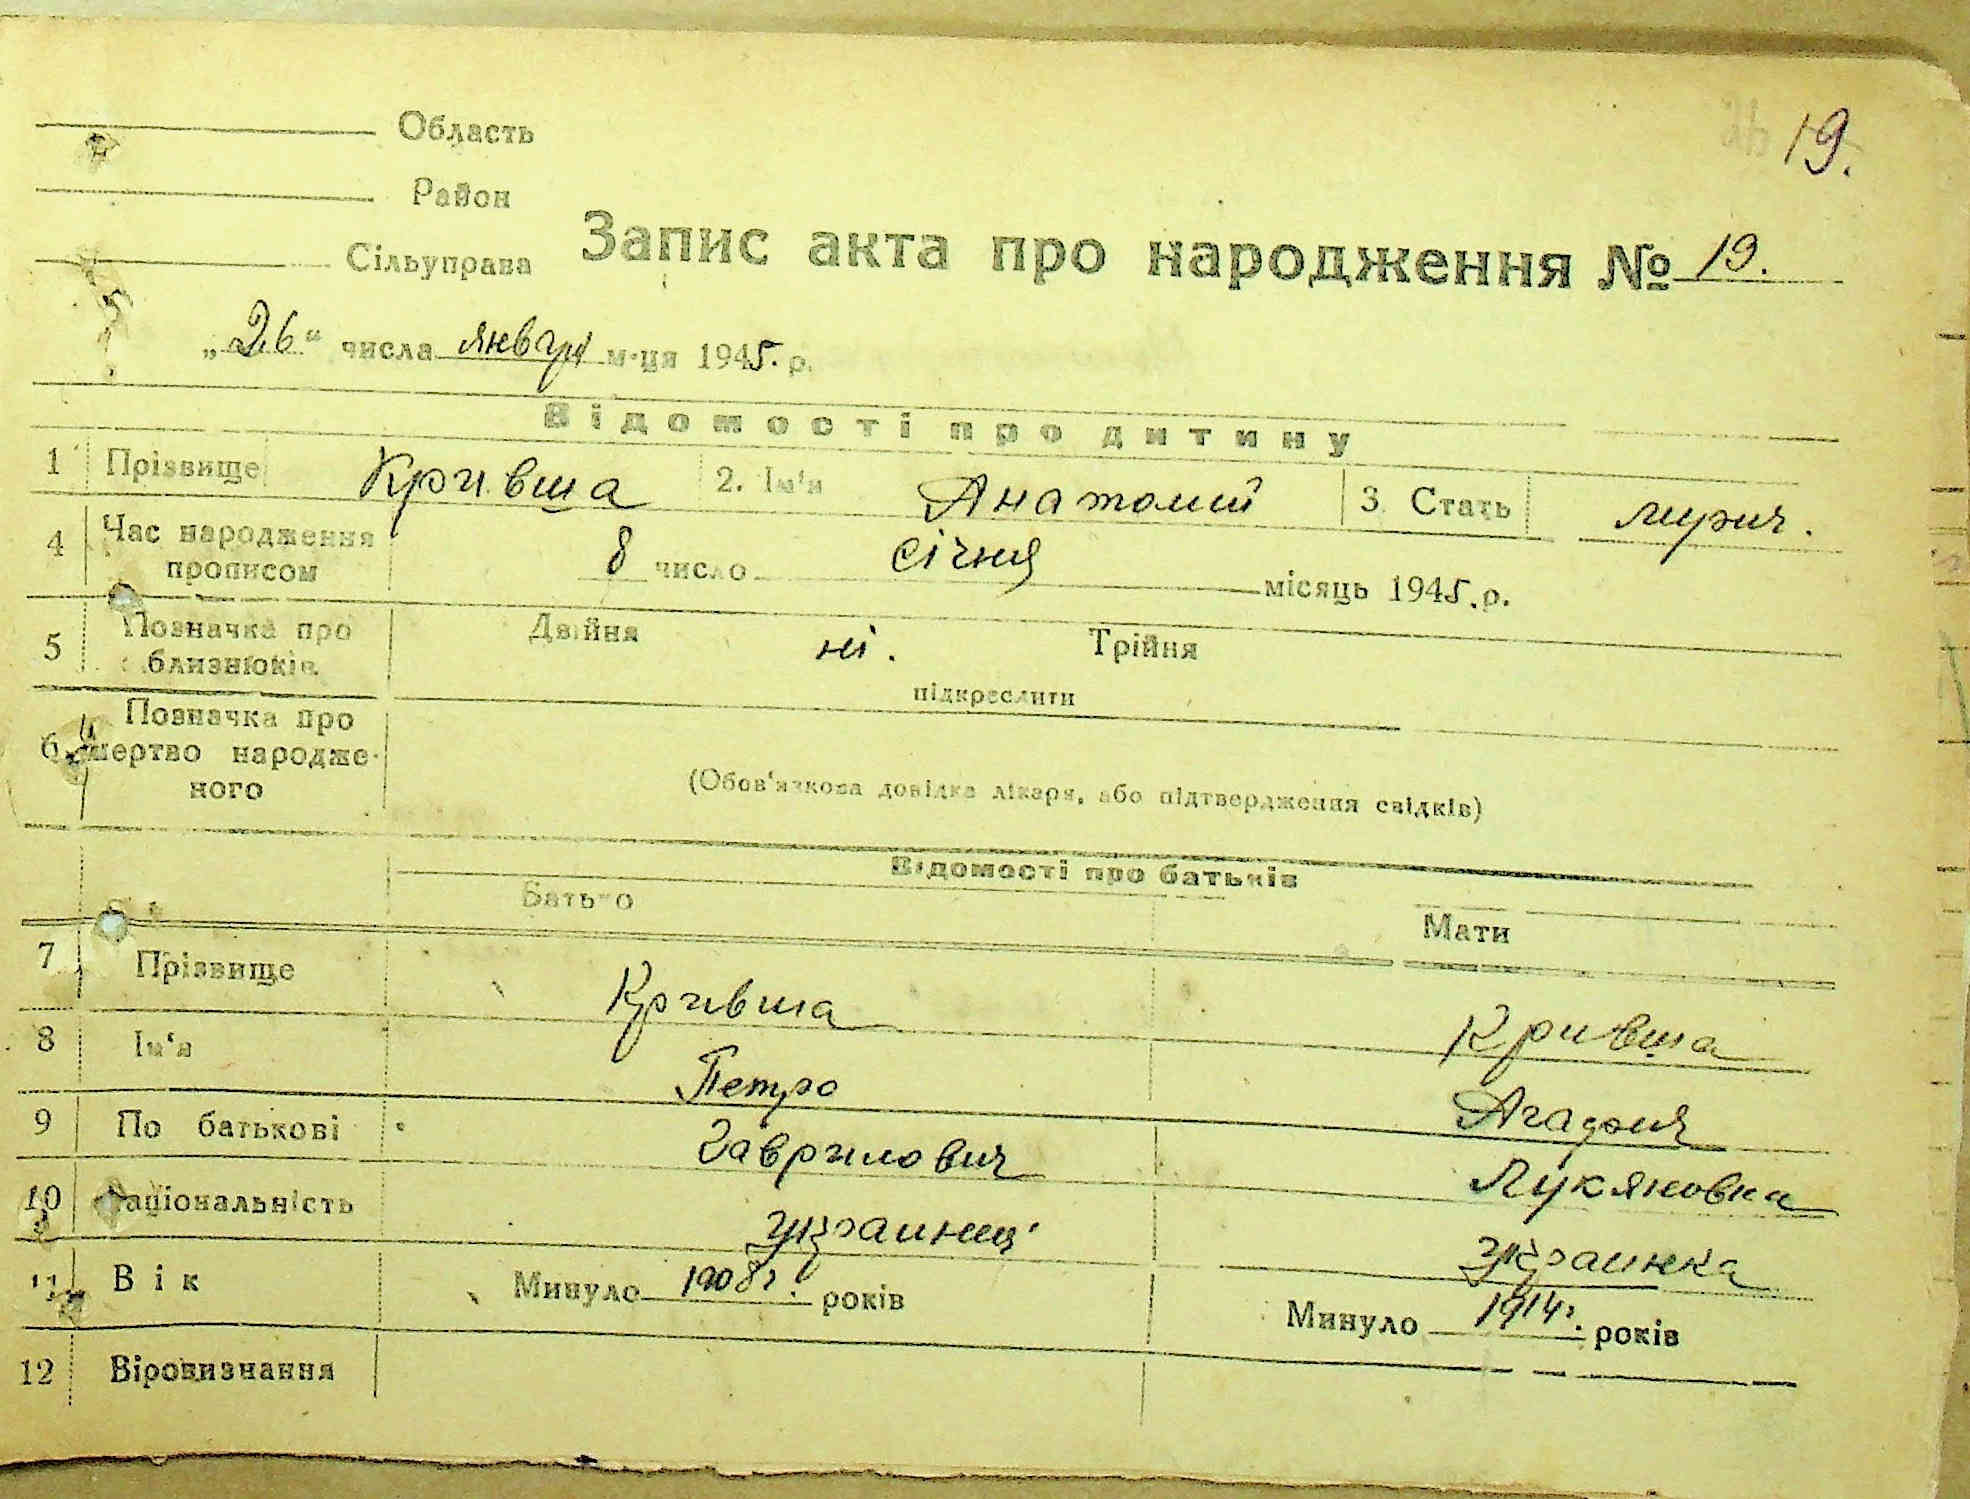 19.
Область
Район
Сільуправа
Запис акта про народження № 19.
„26“ числа января м-ця 1945. р.
Відомості про дитину
1 Прізвище Кривша 2. Ім‘я Анатолий 3. Стать мужч.
4 Час народження прописом 8 число січня місяць 1945. р.
5 Позначка про близнюків. Двійня ні. Трійня
підкреслити
6. Позначка про мертво народже-
ного
(Обов‘язкова довідка лікаря, або підтвердження свідків)
Відомості про батьків
Батько Мати
7 Прізвище Кривша Кривша
8 Ім‘я Петро Агафия
9 По батькові Гаврилович Лукяновна
10 Національність украинец украинка
11 Вік Минуло 1908г. років Минуло 1914г. років
12 Віровизнання